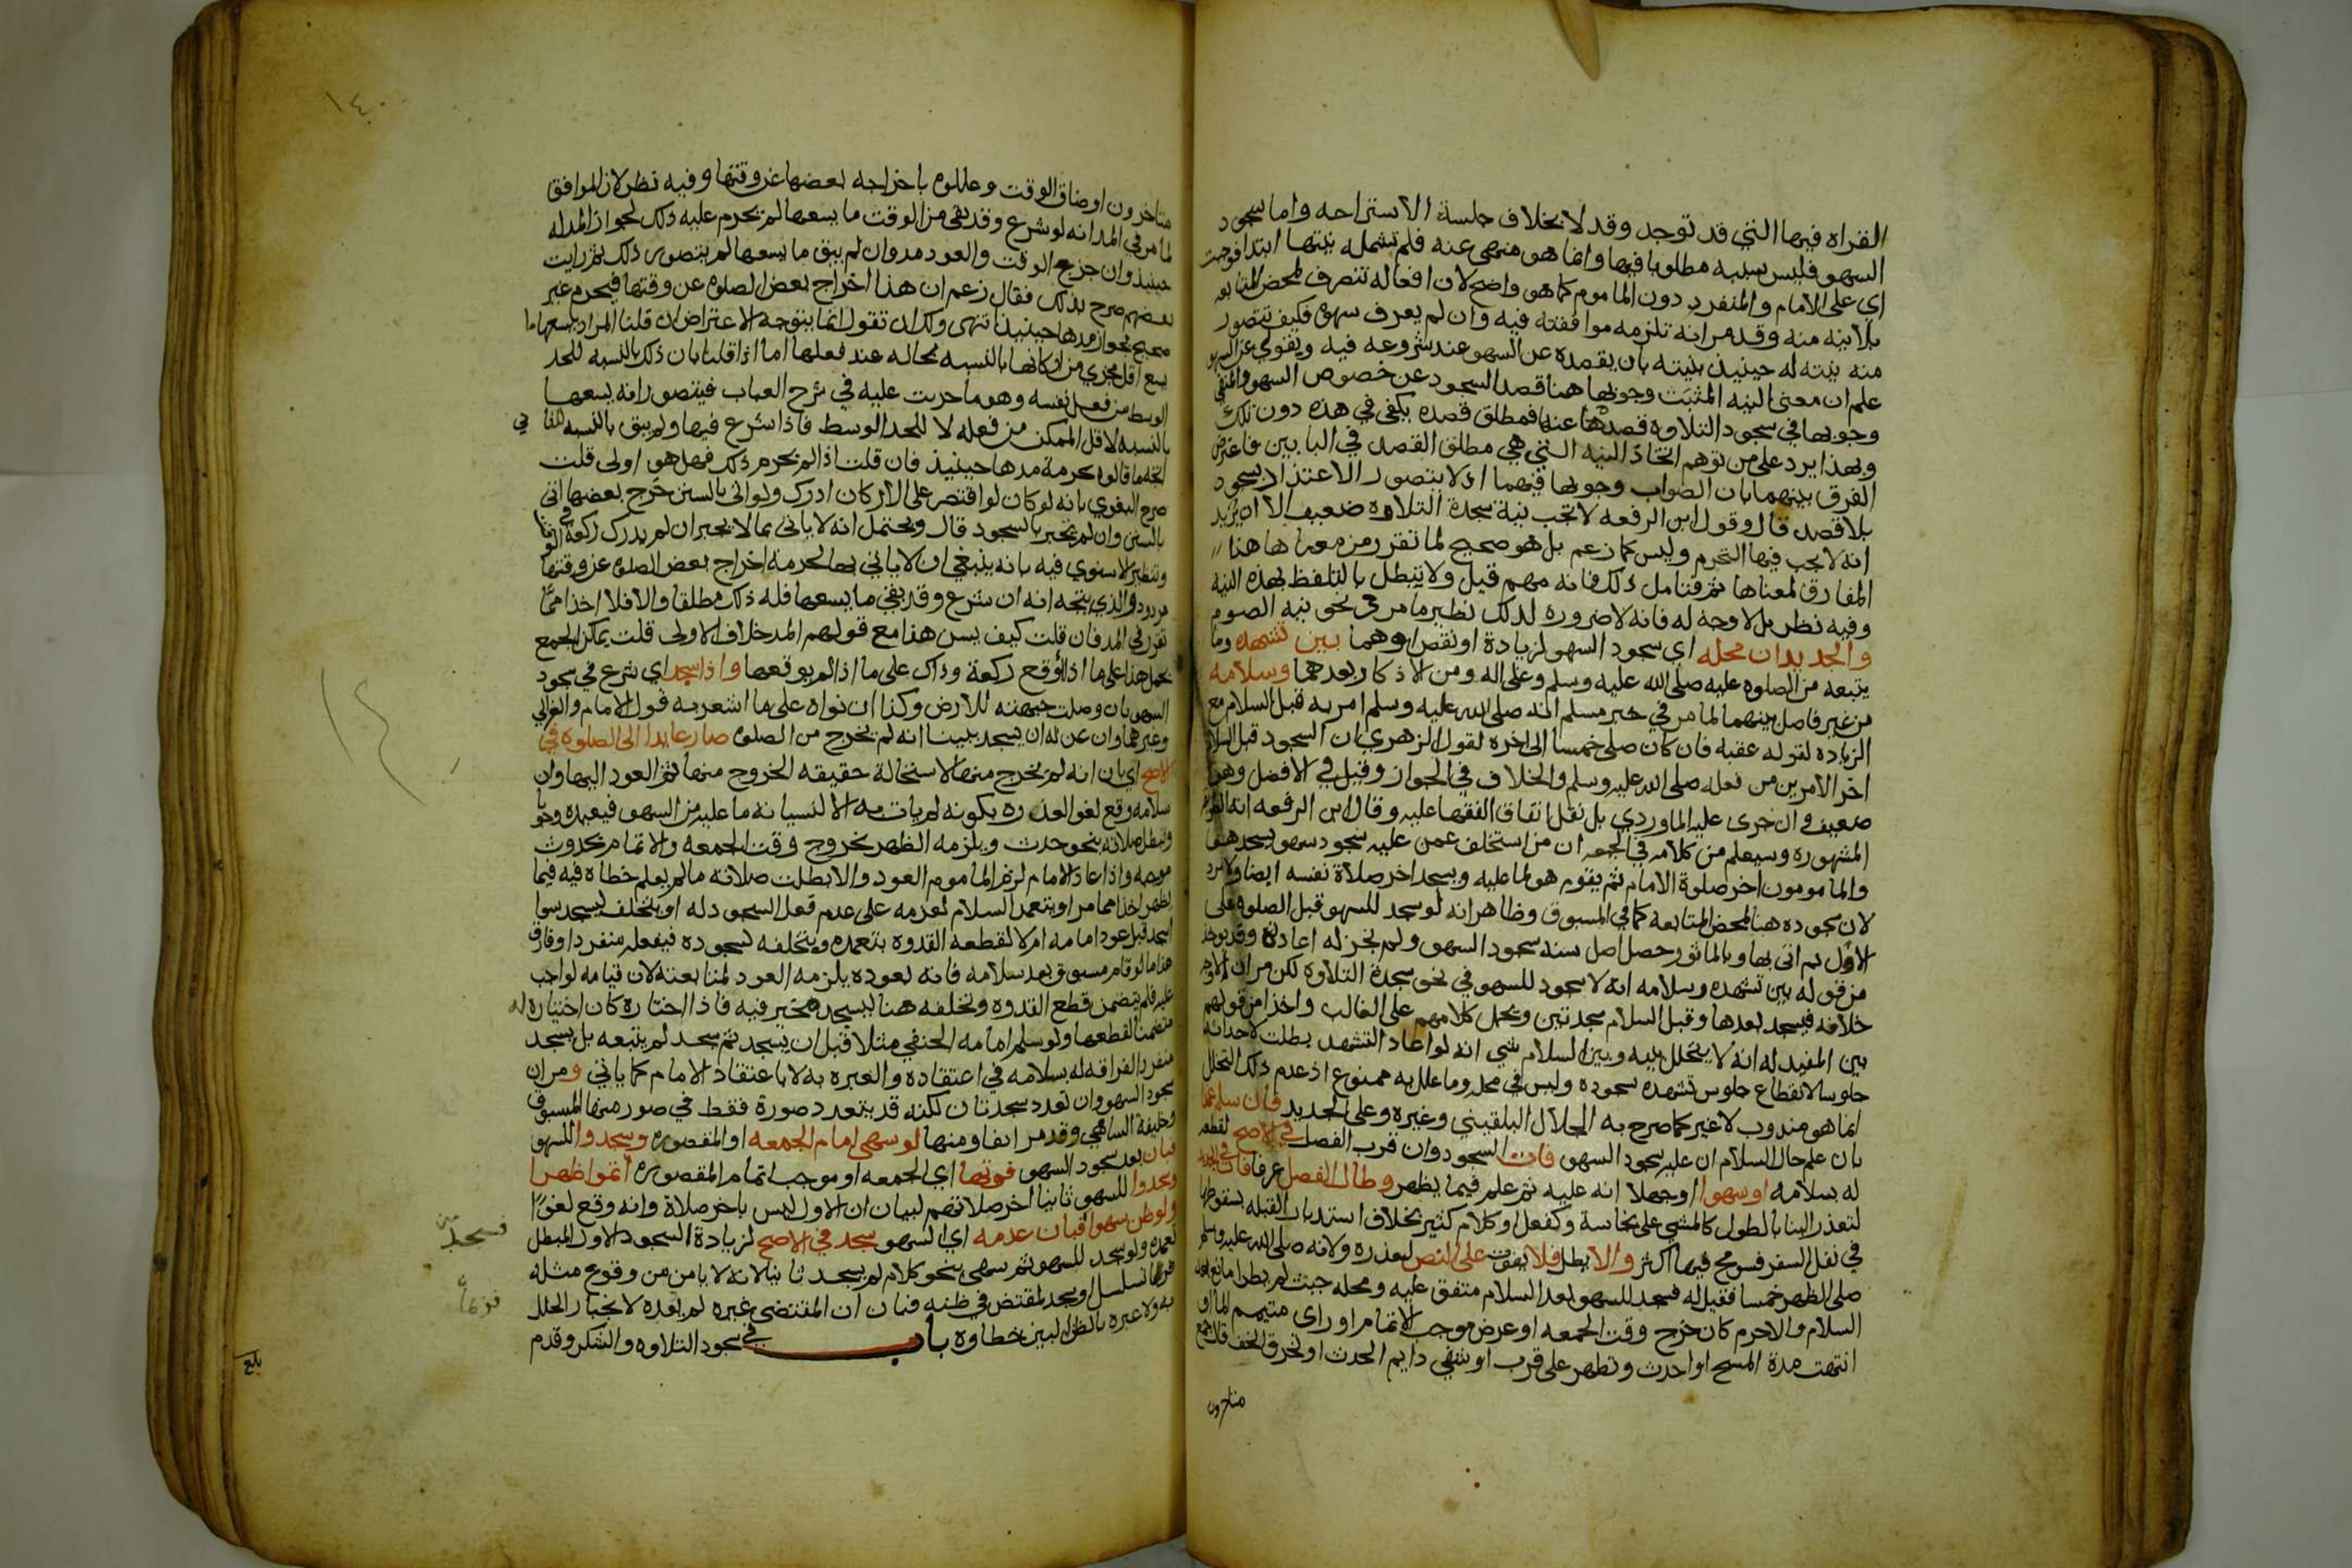 القراه فيها التي قد توجد وقد لا بخلاف جلسة الاستراحه واما سجود
السهو فليس سببه مطلوبا فيها وانما هو منهي عنه فلم تشمله نيتها ابتدا فوجبت
اي على الامام والمنفرد دون الماموم كما هو واضح لان افعاله تنصرف لمحض المتابعه
بلا نيه منه وقد مر انه تلزمه موافقته فيه وان لم يعرف سهوه فكيف تتصور
منه نيته له حينيذ بنيته بان يقصده عن السهو عند شروعه فيه ويقولي عن السهو
علم ان معنى النيه المثبت وجوبها هنا قصد السجود عن خصوص السهو والمنفي
وجوبها في سجود التلاوه قصدها عنها فمطلق قصده يكفي في هذه دون تلك
وبهذا يرد على من توهم اتحاد النيه التي هي مطلق القصد في البابين فاعترض
الفرق بينهما بان الصواب وجوبها فيهما اذ لا يتصور الاعتداد بسجود
بلا قصد قال وقول ابن الرفعه لا تجب نية سجدة التلاوه ضعيف الا ان يريد
انه لا يجب فيها التحرم وليس كما زعم بل هو صحيح لما تقرر من معناها هنا
المفارق لمعناها ثم فتامل ذلك فانه مهم قيل ولا تبطل بالتلفظ بهذه النيه
وفيه نظر بل لا وجه له فانه لا ضروره لذلك نظير ما مر في نحو نيه الصوم
والجديد ان محله اي سجود السهو لزيادة او نقص او هما بين تشهده وما
يتبعه من الصلوه عليه صلى الله عليه وسلم وعلى اله ومن الاذكار بعدهما وسلامه
من غير فاصل بينهما لما مر في خبر مسلم انه صلى الله عليه وسلم امر به قبل السلام مع
الزياده لقوله عقبه فان كان صلى خمسا الى اخره لقول الزهري ان السجود قبل السلام
اخر الامرين من فعله صلى الله عليه وسلم والخلاف في الجواز وقيل في الافضل وهو
ضعيف وان جرى عليه الماوردي بل نقل اتفاق الفقها عليه وقال ابن الرفعه انه
المشهوره وسيعلم من كلامه في الجمعه ان من استخلف عمن عليه سجود سهو يسجد هو
والمامومون اخر صلوة الامام ثم يقوم هو لما عليه ويسجد اخر صلاة نفسه ايضا ولا يرد
لان سجوده هنا لمحض المتابعه كما في المسبوق وظاهر انه لو سجد للسهو قبل الصلوه على
الاول ثم اتى بها وبالماثور حصل اصل سنه سجود السهو ولم يجز له اعادته وقد يوخذ
من قوله بين تشهده وسلامه انه لا سجود للسهو في نحو سجدة التلاوه لكن مر ان الاوجه
خلافه فيسجد بعدها وقبل السلام سجدتين ويحمل كلامهم على الغالب واخذ من قولهم
بين المفيد له انه لا يتخلل بينه وبين السلام شي انه لو اعاد التشهد بطلت لاحداثه
جلوسا لانقطاع جلوس تشهده بسجوده وليس في محله وما علل به ممنوع اذ عدم ذلك التخلل
انما هو مندوب لا غير كما صرح به الجلال البلقيني وغيره وعلى الجديد فان سلم عمدا
بان علم حال السلام ان عليه سجود السهو فات السجود وان قرب الفصل في الاصح لقطعه
له بسلامه او سهوا او جهلا انه عليه ثم علم فيما يظهر وطال الفصل عرفا فات في الجديد
لتعذر البنا بالطول كالمشي على نجاسة وكفعل او كلام كثير بخلاف استدبار القبله
في نفل السفر فسومح فيها اكثر والا يطل فلا يفوت على النص لعذره ولانه صلى الله عليه وسلم
صلى الظهر خمسا فقيل له فسجد للسهو بعد السلام متفق عليه ومحله حيث لم يطرا مانع بعد
السلام والا حرم كان خرج وقت الجمعه او عرض موجب الاتمام او راى متيمم الماء او
انتهت مدة المسح او احدث وتطهر على قرب او شفي دايم الحدث او تخرق الخف
متاخرون
١٤٠
متاخرون او ضاق الوقت وعللوه باخراجه بعضها عن وقتها وفيه نظر لان الموافق
لما مر في المد انه لو شرع وقد بقي من الوقت ما يسعها لم يحرم عليه ذلك لجواز المد له
حينيذ وان خرج الوقت والعود مد وان لم يبق ما يسعها لم يتصور ذلك ثم رايت
بعضهم صرح بذلك فقال زعم ان هذا اخراج بعض الصلوه عن وقتها فيحرم غير
صحيح لجواز مدها حينيذ انتهى ولك ان تقول انما يتوجه الاعتراض ان قلنا المراد بيسعها ما
يسع اقل مجزي من اركانها بالنسبه لحاله عند فعلها اما اذا قلنا بان ذلك بالنسبه للحد
الوسط من فعل نفسه وهو ما جريت عليه في شرح العباب فيتصور انه يسعها
بالنسبه لاقل الممكن من فعله لا للحد الوسط فاذا شرع فيها ولم يبق بالنسبه
اتجه ما قالوه بحرمة مدها حينيذ فان قلت اذا لم يحرم ذلك فهل هو اولى قلت
صرح البغوي بانه لو كان لو اقتصر على الاركان ادرك ولو اتى بالسنن خرج بعضها اتى
بالسنن وان لم تجبر بالسجود قال ويحتمل انه لا ياتي بما لا يجبر ان لم يدرك ركعة
وتنظير الاسنوي فيه بانه ينبغي ان لا ياتي بها لحرمة اخراج بعض الصلوه عن وقتها
مردود والذي يتجه انه ان شرع وقد بقي ما يسعها فله ذلك مطلقا والا فلا اخذا مما
تقرر في المد فان قلت كيف يسن هذا مع قولهم المد خلاف الاولى قلت يمكن الجمع
بحمل هذا على ما اذا اوقع ركعة وذاك على ما اذا لم يوقعها واذا سجد اي شرع في سجود
السهو بان وصلت جبهته للارض وكذا ان نواه على ما اشعر به قول الامام والغزالي
وغيرهما وان عن له ان يسجد تبينا انه لم يخرج من الصلوه صار عايدا الى الصلوه في
الاصح اي بان انه لم يخرج منها لاستحالة حقيقه الخروج منها ثم العود اليها وان
سلامه وقع لغوا لعذره بكونه لم يات به الا لنسيانه ما عليه من السهو فيعيده وجوبا
وتبطل صلاته بنحو حدث ويلزمه الظهر بخروج وقت الجمعه والاتمام بحدوث
موجبه واذا عاد الامام لزم الماموم العود والا بطلت صلاته ما لم يعلم خطاه فيه فيما
يظهر اخذا مما مر او يتعمد السلام لعزمه على عدم فعل السجود له او يتخلف ليسجد سوا
اسجد قبل عود امامه ام لا لقطعه القدوه بتعمده وبتخلفه لسجوده فيفعله منفردا وفارق
هذا ما لو قام مسبوق بعد سلامه فانه بعوده يلزمه العود لمتابعته لان قيامه لواجب
عليه فلم يتضمن قطع القدوه وتخلفه هنا ليسجد مخير فيه فاذا اختاره كان اختياره له
متضمنا لقطعها ولو سلم امامه الحنفي مثلا قبل ان يسجد ثم سجد لم يتبعه بل يسجد
منفردا لفراقه له بسلامه في اعتقاده والعبره به لا باعتقاد الامام كما ياتي ومر ان
سجود السهو وان تعدد سجدتان لكنه قد يتعدد صورة فقط في صور منها المسبوق
وخليفة الساهي وقد مر انفا ومنها لو سهى امام الجمعه او المقصوره وسجدوا للسهو
فبان بعد سجود السهو فوتها اي الجمعه او موجب اتمام المقصوره اتموا ظهرا
وسجدوا للسهو ثانيا اخر صلاتهم لبيان ان الاول ليس باخر صلاة وانه وقع لغوا
ولو ظن سهوا فبان عدمه اي السهو سجد في الاصح لزيادة السجود الاول المبطل
تعمده ولو سجد للسهو ثم سهى بنحو كلام لم يسجد ثانيا لانه لا يامن من وقوع مثله
فربما تسلسل او سجد لمقتض في ظنه فبان ان المقتضي غيره لم يعده لانجبار الخلل
به ولا عبره بالظن البين خطاوه باب في سجود التلاوه والشكر وقدم
فسجد
فربما
بلغ